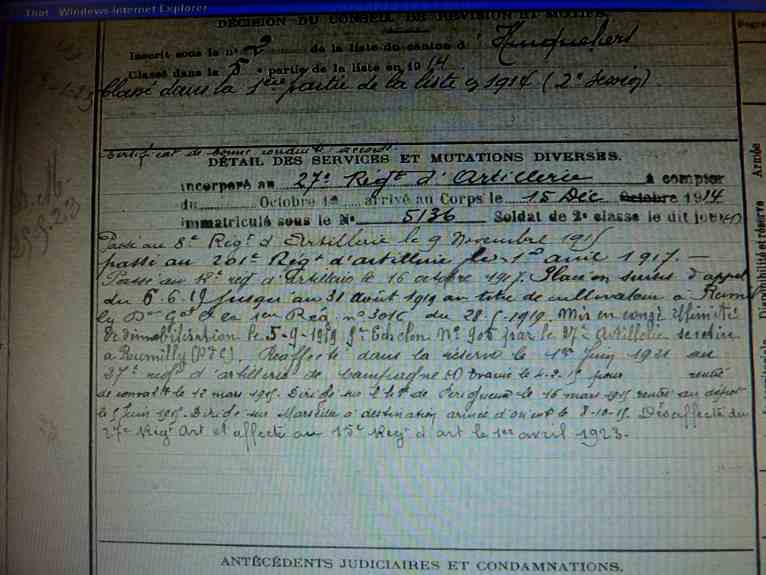 That - Windows Internet Explorer
DÉCISION DU CONSEIL DE RÉVISION ET MOTIFS.
Inscrit sous le n° 2 de la liste du canton d' Hucqueliers
Classé dans la 5e partie de la liste en 1914
Classé dans la 1ère partie de la liste 1914 (2e session).
Certificat de bonne conduite accordé.
DÉTAIL DES SERVICES ET MUTATIONS DIVERSES.
Incorporé au 27e Régt d'Artillerie à compter
du Octobre 19 arrivé au Corps le 15 Déc Octobre 1914
immatriculé sous le N° 5136 Soldat de 2e classe le dit jour
Passé au 8e Régt d'Artillerie le 9 Novembre 1915
passé au 201e Régt d'artillerie le 1er avril 1917. —
Passé au reg d'Artillerie le 16 octobre 1917. Placé en sursis d'appel
du 6.6.19 jusqu'au 31 Août 1919 au titre de cultivateur à
1ère Rég n° 3016 du 28-5-1919. Mis en congé illimité
de démobilisation le 5-9-1919 Echelon N° 905 par le 27e Artillerie se retire
à Rumilly (P.d.C). Réaffecté dans la réserve le 1er Juin 1921 au
27e régt d'artillerie de campagne Evacué le 4.2.15 pour rentré
de convalce le 12 mars 1915. Dirigé sur l'h de Périgueux le 16 mars 1915 rentré au dépot
le 5 Juin 1915. Dirigé sur Marseille à destination armée d'orient le 8-10-15. Désaffecté du
27e Régt Art et affecté au 15e Régt d'art le 1er avril 1923.
ANTÉCÉDENTS JUDICIAIRES ET CONDAMNATIONS.
Armée
Disponibilité et réserve